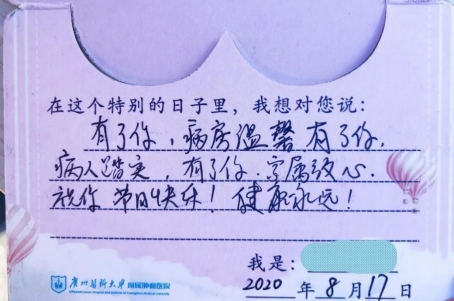 在这个特别的日子里，我想对您说：
有了你，病房温馨有了你，
病人踏实，有了你，家属放心．
祝你节日快乐！健康永远！
我是：
2020年8月17日
广州医科大学附属肿瘤医院